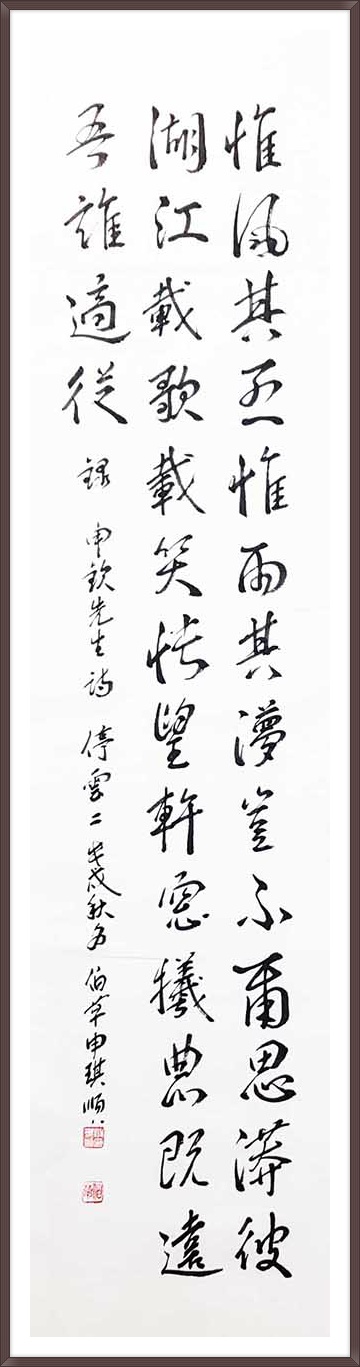 惟風其烈惟雨其濛豈不爾思漭彼
湖江載歌載笑悵望軒窓犧典既遠
吾誰適從 錄 申欽先生詩 停雲二 戊戌秋夕 伯草申琪順